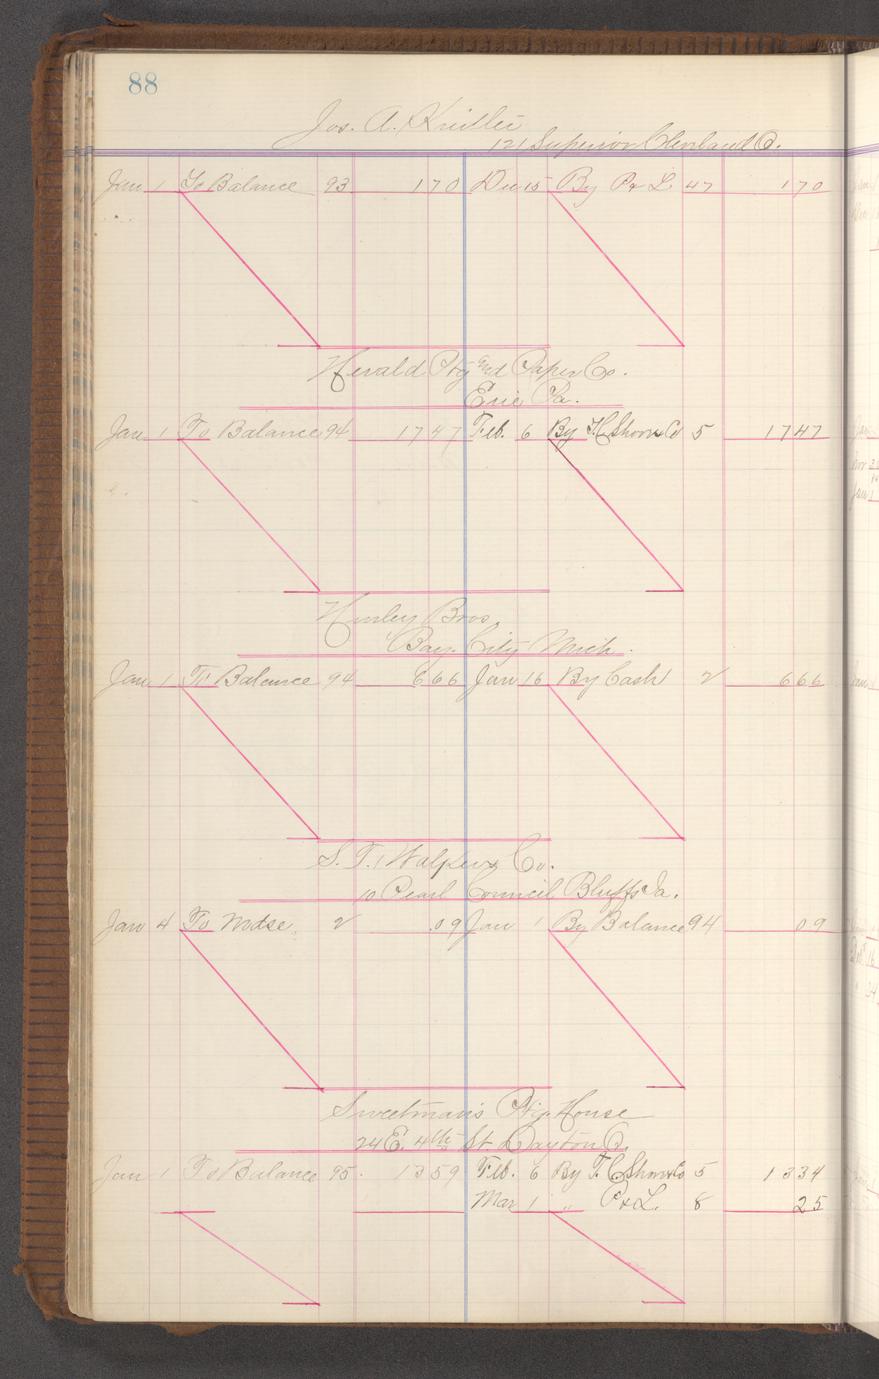 88
Jos. A.
121 Superior Cleveland O.
Jan 1 To Balance 93 170 Dec 15 By P & L 47 170
Herald Ptg and Paper Co.
Erie Pa.
Jan 1 To Balance 94 1747 Feb. 6 By T.C. & Co 5 1747
Bros
Bay City Mich.
Jan 1 To Balance 94 666 Jan 16 By Cash 2 666
S. T. Walker & Co.
10 Pearl Council Bluffs Ia.
Jan 4 To Mdse. 2 .09 Jan 1 By Balance 94 09
Sweetman's Ptg. House
24 E. 4th St Dayton O.
Jan 1 To Balance 95. 1359 Feb. 6 By T.C. & Co 5 1334
Mar 1 " P & L. 8 25